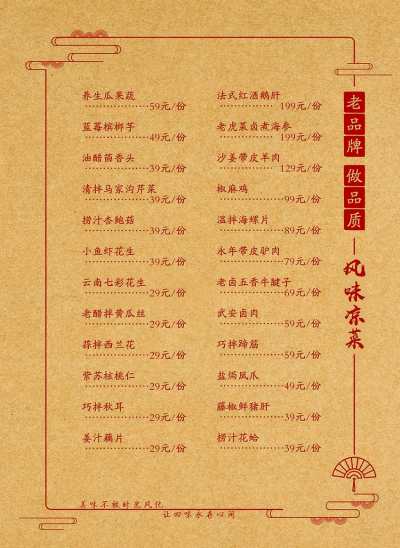 老品牌 做品质
风味凉菜
养生瓜果蔬
59元/份
蓝莓槟榔芋
49元/份
油醋茴香头
39元/份
清拌马家沟芹菜
39元/份
捞汁杏鲍菇
39元/份
小鱼虾花生
39元/份
云南七彩花生
29元/份
老醋拌黄瓜丝
29元/份
蒜拌西兰花
29元/份
紫苏核桃仁
29元/份
巧拌秋耳
29元/份
姜汁藕片
29元/份
法式红酒鹅肝
199元/份
老虎菜卤煮海参
199元/份
沙姜带皮羊肉
129元/份
椒麻鸡
99元/份
温拌海螺片
89元/份
永年带皮驴肉
79元/份
老卤五香牛腱子
69元/份
武安卤肉
59元/份
巧拌蹄筋
59元/份
盐焗凤爪
49元/份
藤椒鲜猪肝
39元/份
捞汁花蛤
39元/份
美味不被时光风化
让回味永存心间